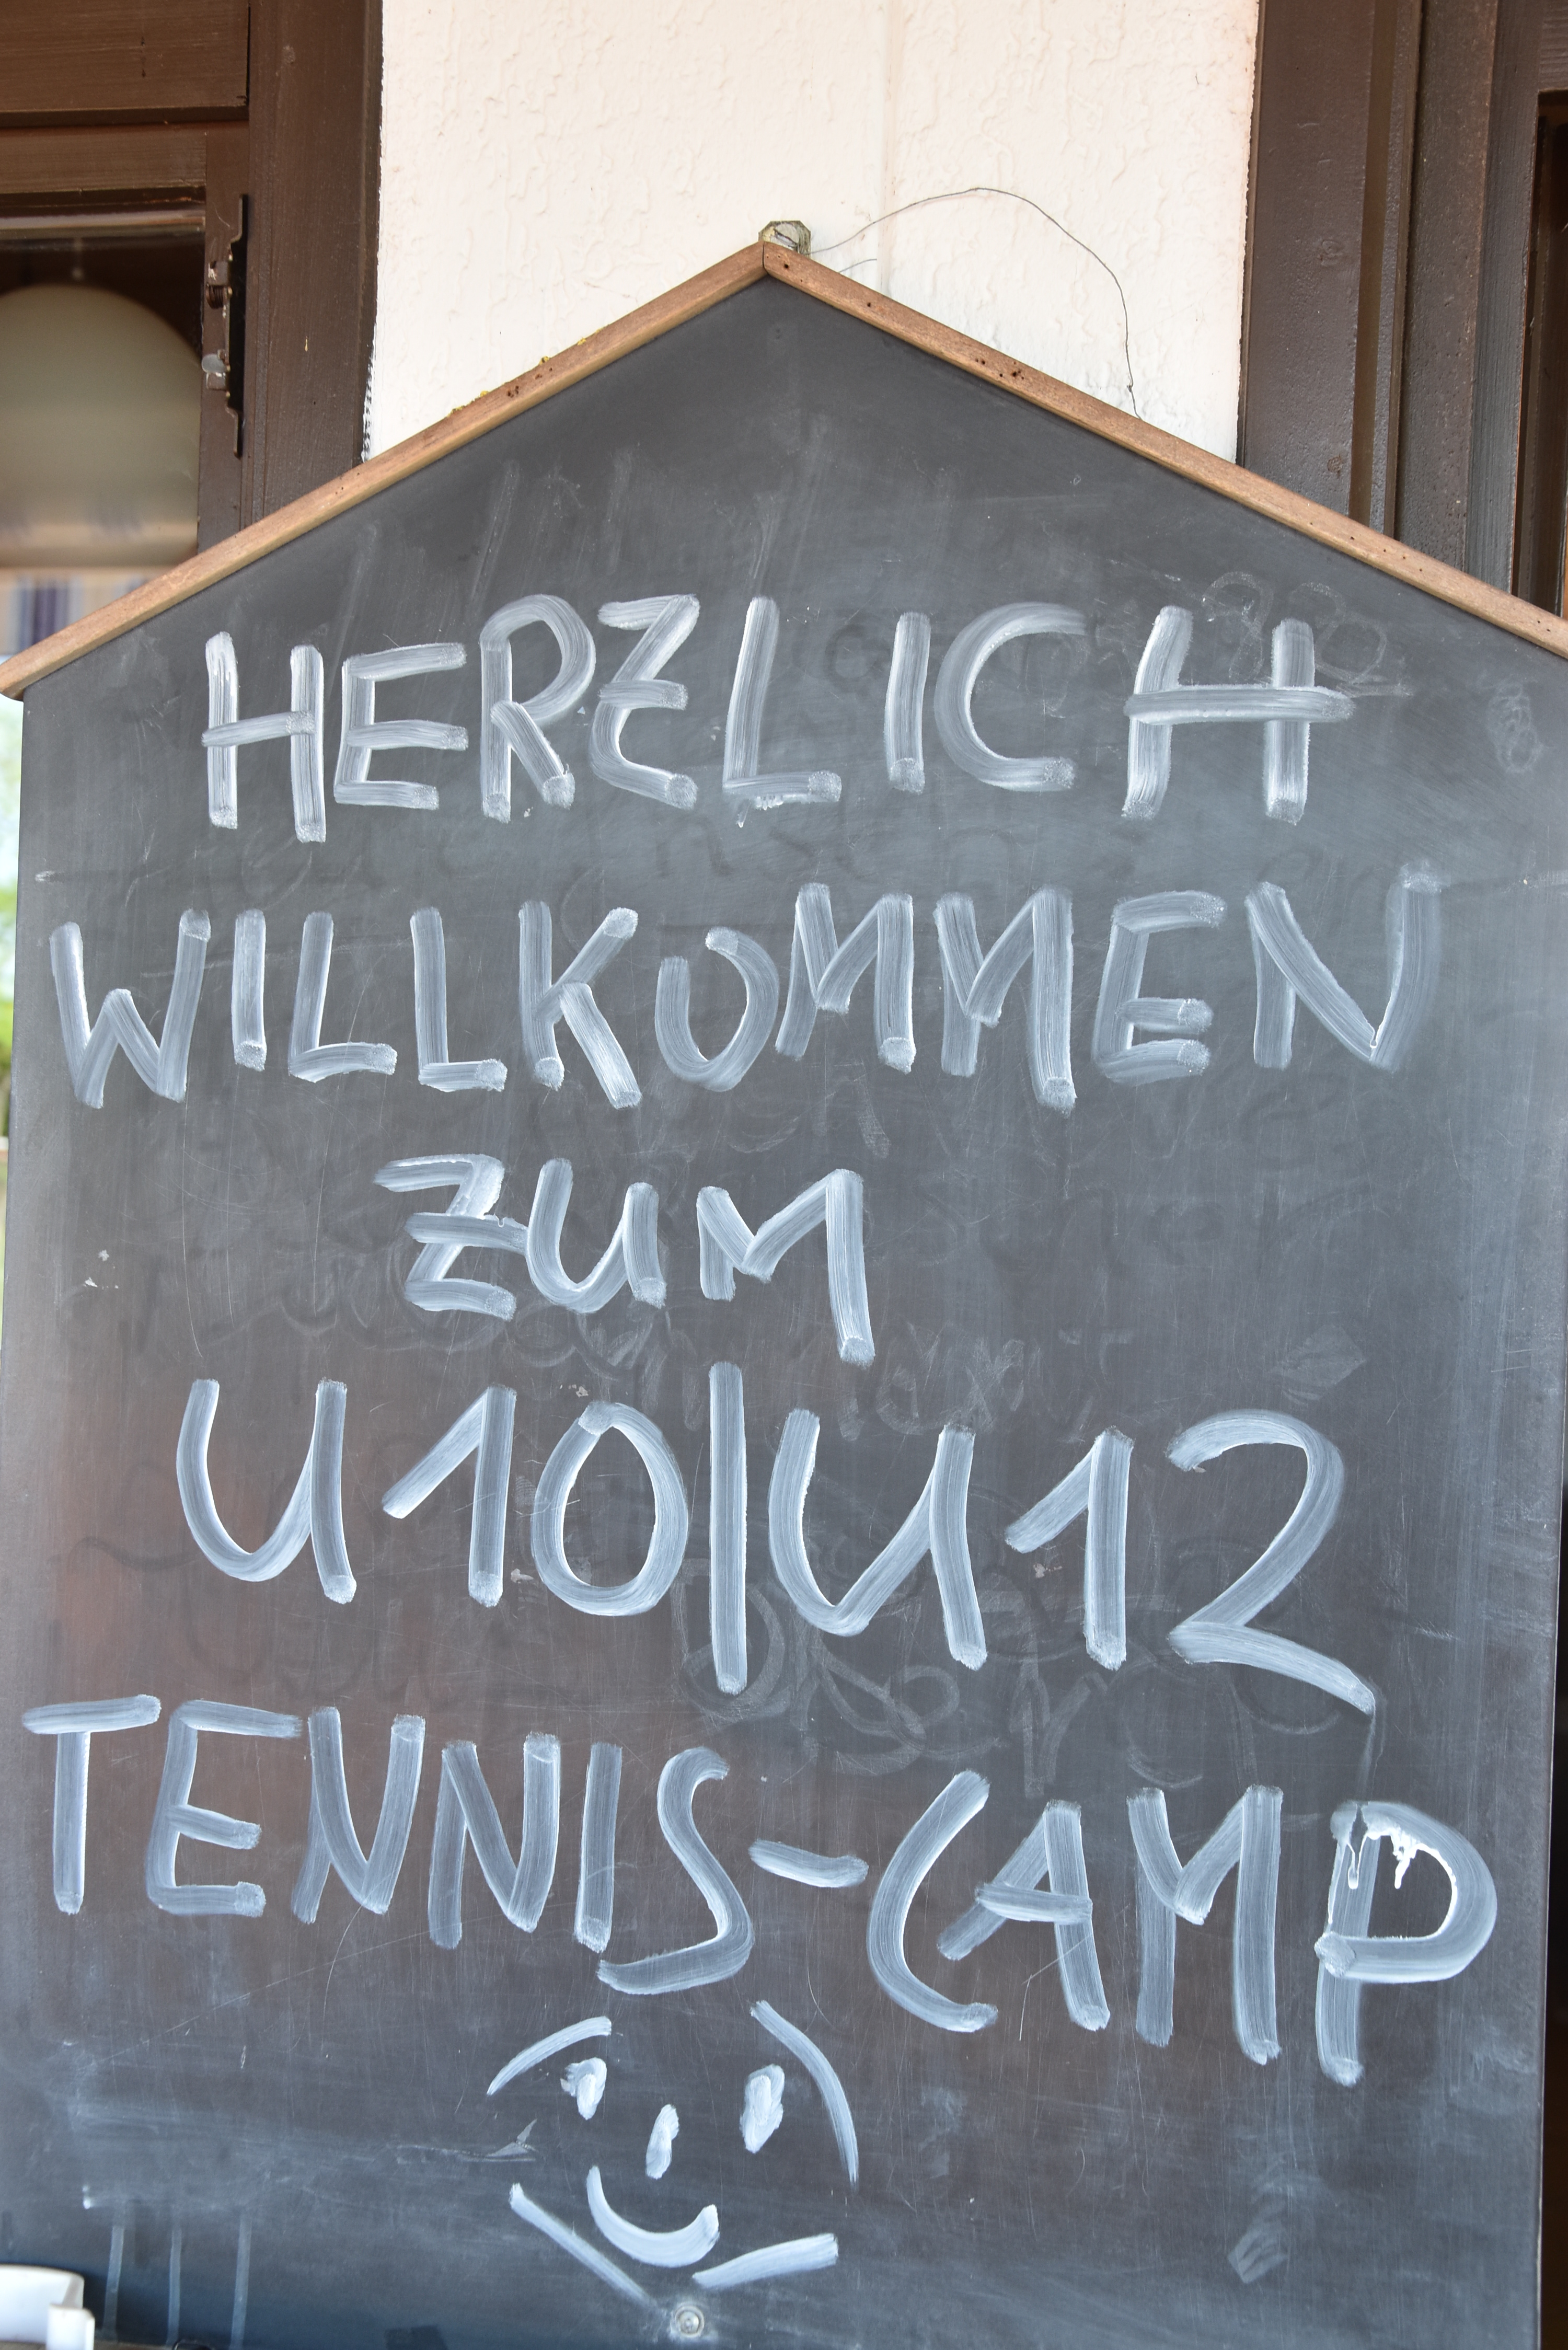 HERZLICH
WILLKOMMEN
ZUM
U10|U12
TENNIS-CAMP